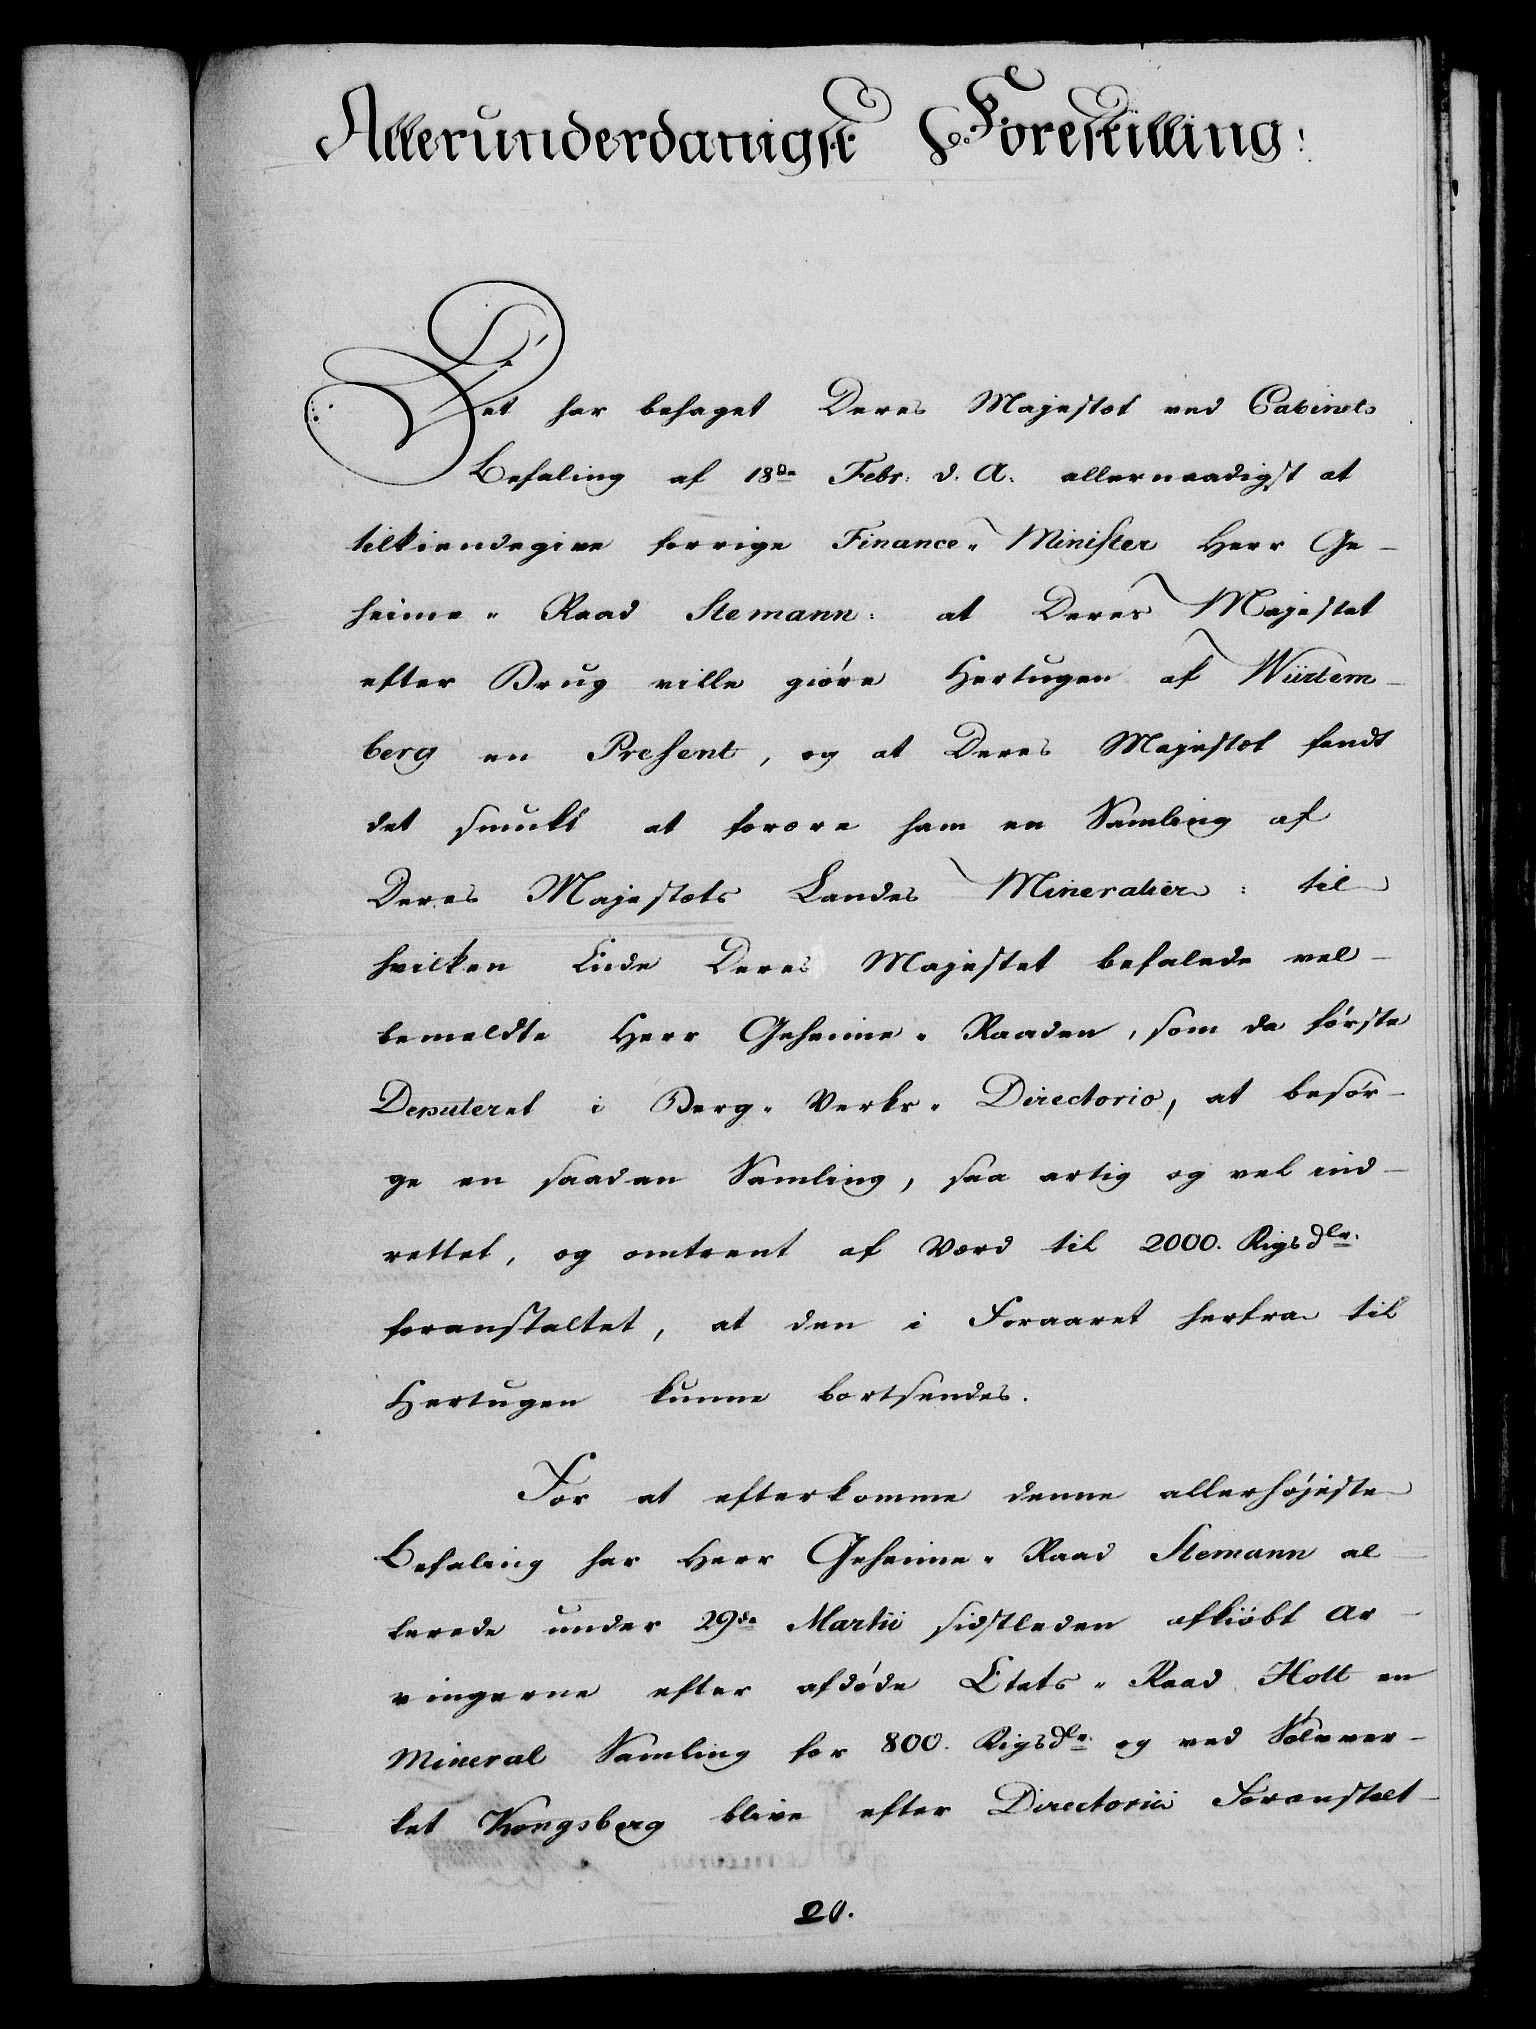 Allerunderdanigst Forestilling:
Det har behaget Deres Majestæt ved Cabinets
Befaling af 18de Febr: d. A. allernaadigst at
tilkiendegive forrige Finance-Minister Herr Ge-
heime-Raad Stemann: at Deres Majestet
efter Brug ville giøre Hertugen af Würtem-
berg en Present, og at Deres Majestæt fandt
det smukt at forære ham en Samling af
Deres Majestæts Landes Mineralier: til
hvilken Ende Deres Majestet befalede vel-
bemeldte Herr Geheime-Raaden, som da første
Deputeret i Berg-Verks-Directorio, at besør-
ge en saadan Samling, saa artig og vel ind-
rettet, og omtrent af Værd til 2000. Rigsdlr.
foranstaltet, at den i Foraaret herfra til
Hertugen kunne bortsendes.
For at efterkomme denne allerhøjeste
Befaling har Herr Geheime-Raad Stemann al-
lerede under 29de Martii sidstleden afkiøbt Ar-
vingerne efter afdøde Etats-Raad Holt en
Mineral Samling for 800. Rigsdlr. og ved Sølvver-
ket Kongsberg blive efter Directorii Foranstalt-
20.